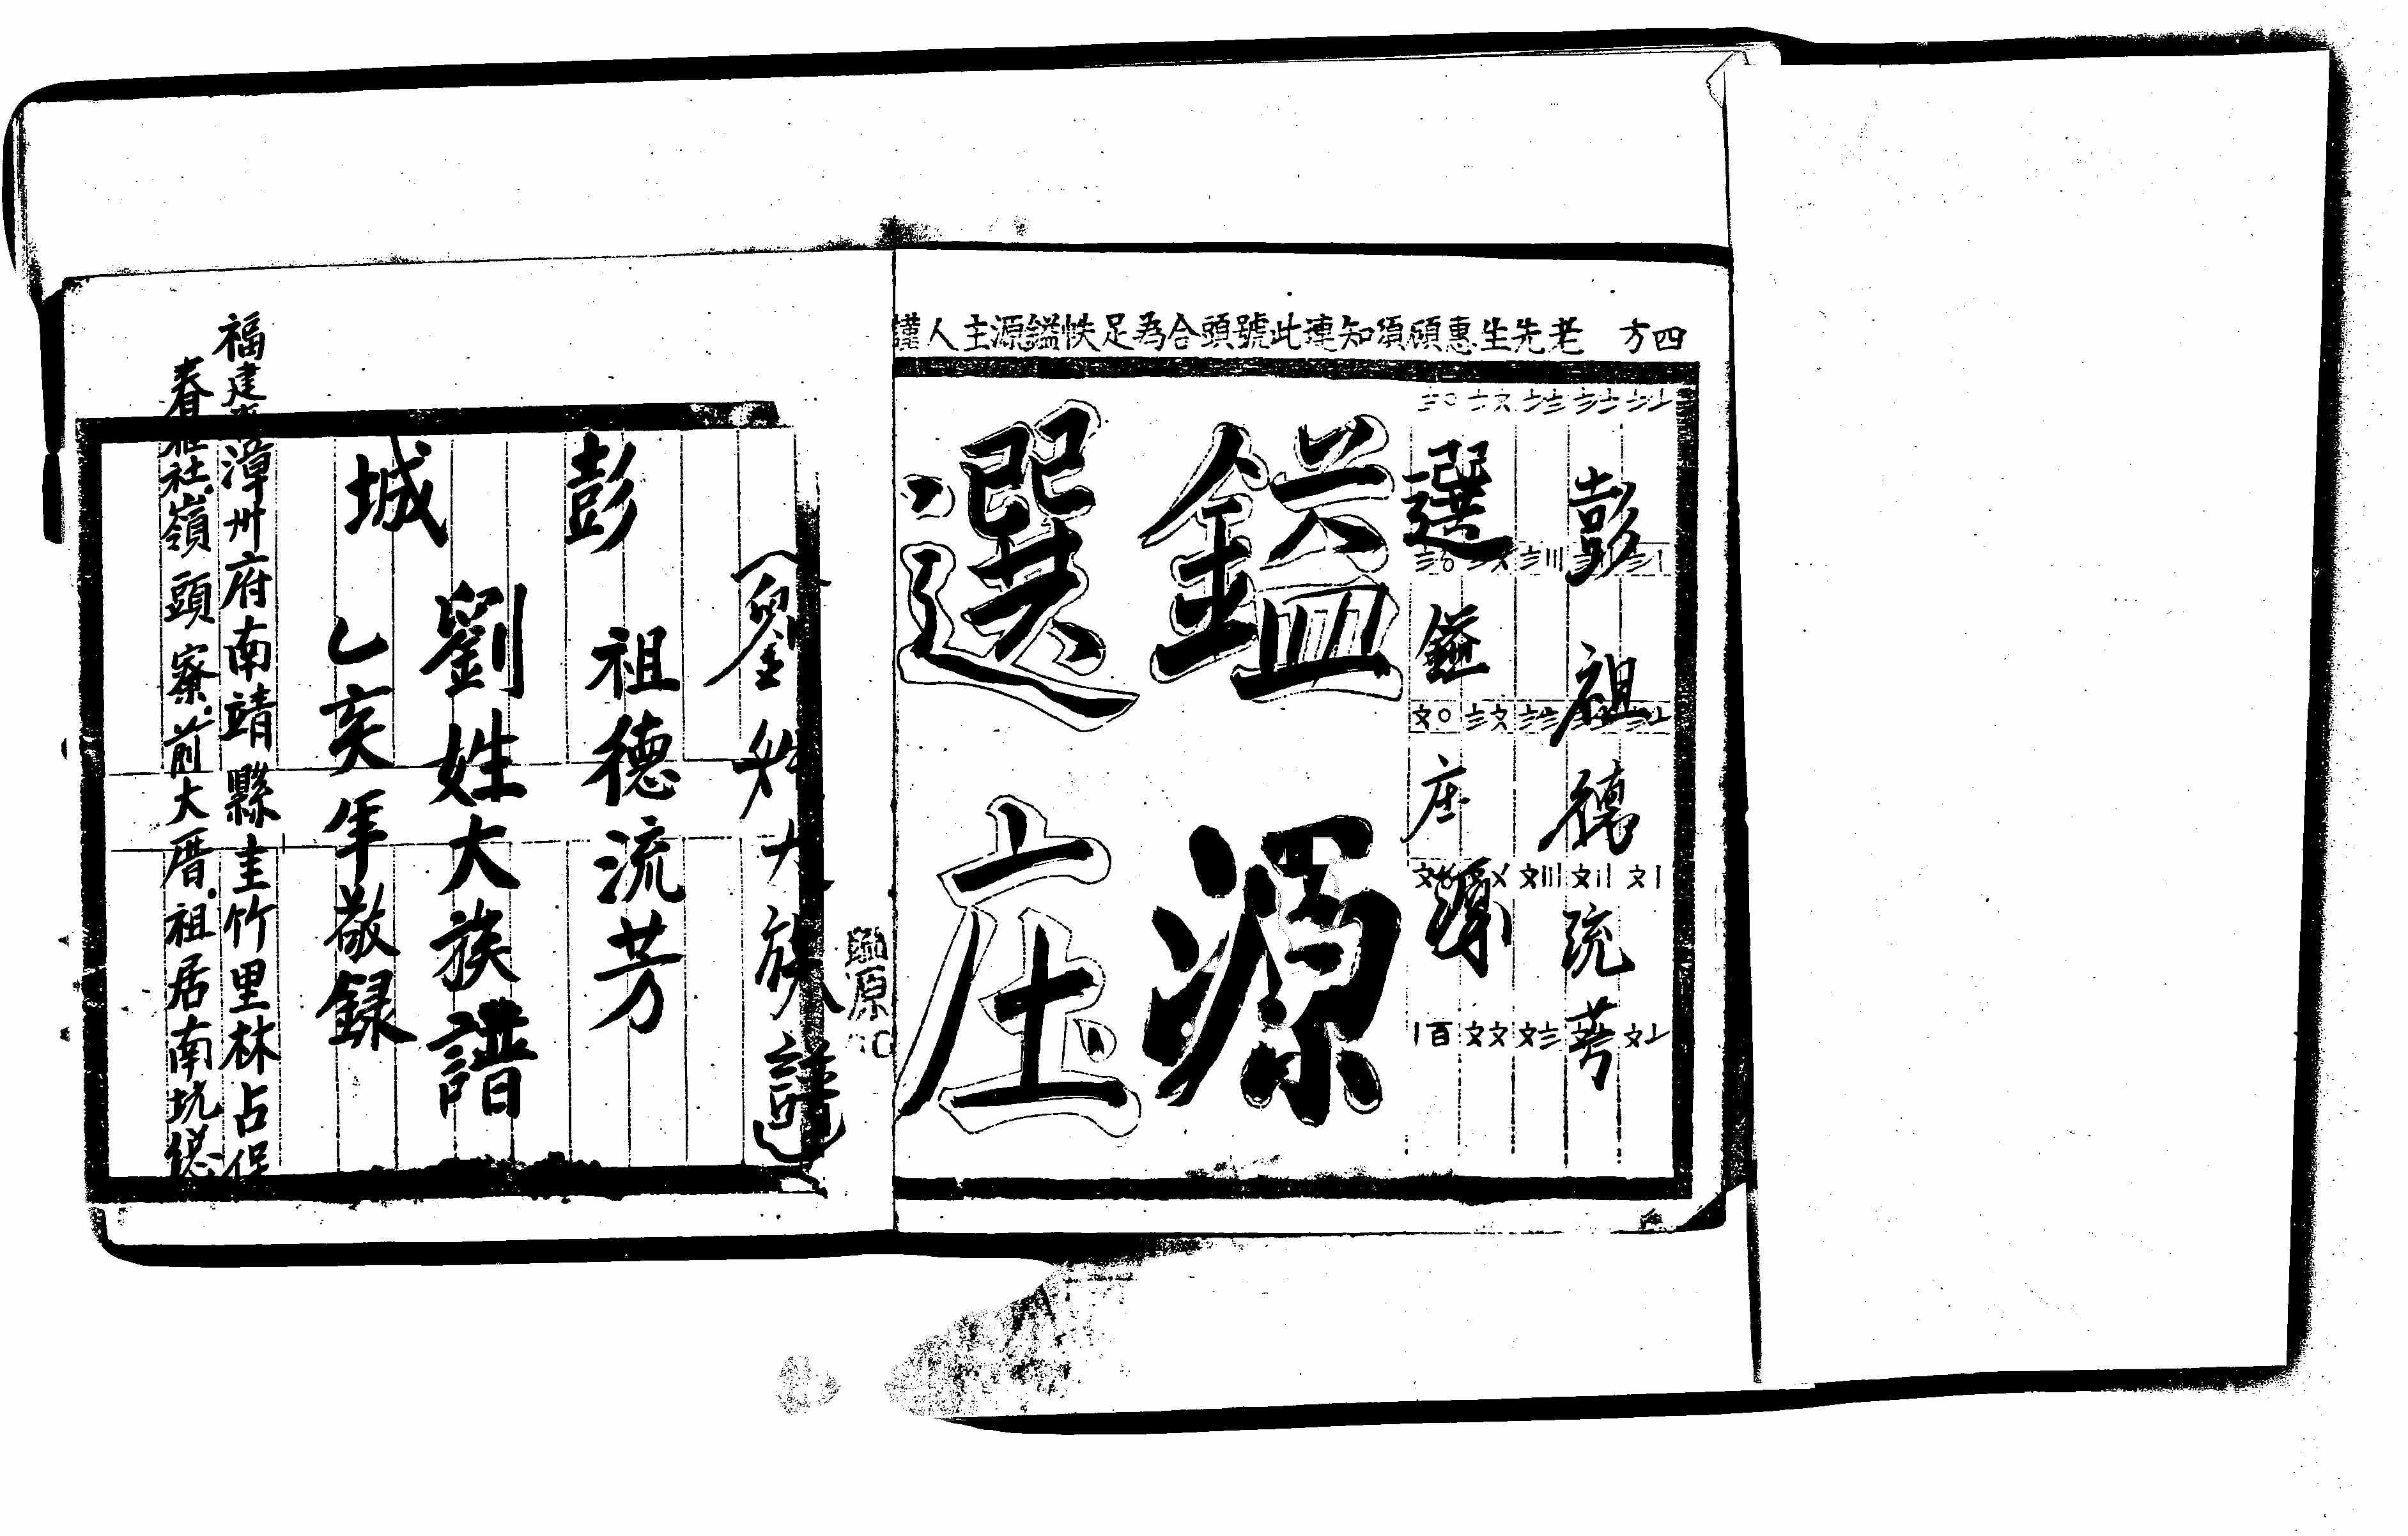 四方　老先生惠顧須知連此號頭合為足帙鎰源主人謹
彭祖德流芳
選鎰庄源
鎰源
選庄
劉姓大族譜
彭城
祖德流芳
劉姓大族譜
乙亥年敬録
福建省漳州府南靖縣圭竹里林占保
春雅社嶺頭寮前大厝祖居南坑